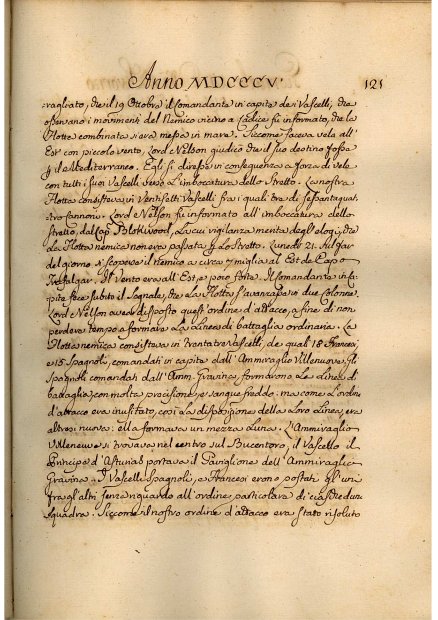 Anno MDCCCV. 121
ragliato, che il 19 Ottobre il Comandante in capite de i Vascelli, che
osservano i movimenti del Nemico vicino a Cadice fu informato, che la
Flotta combinata si era messa in mare. Siccome faceva vela all'
Est con piccolo vento, Lord Nelson giudicò che il suo destino fosse
p il Mediterraneo. Egli si diresse in conseguenza a forza di vele
con tutti i suoi Vascelli verso l'imboccatura dello Stretto. La nostra
Flotta consisteva in Ventisette Vascelli fra i quali tre di sessantaquat
tro Cannoni. Lord Nelson fu informato all'imboccatura dello
Stretto, dal Cap. Blokwood, la cui vigilanza merita degl'elogi, che
la Flotta nemica non era passata p Lo Stretto. Lunedì 21. sul far
del giorno si scopore il Nemico a circa 7 miglia al Est de Capo
Trefalgar. Il Vento era all'Est, e poco forte. Il Comandante in Ca
pite fece subito il Segnale, che la Flotta s'avanzasse in due Colonne.
Lord Nelson avea disposto quest'ordine d'attacco, a fine di non
perdere tempo a formare la linea di battaglia ordinaria. La
Flotta nemica consisteva in trentatre Vascelli, de quali 18 Francesi,
e 15 Spagnoli, comandati in capite dall'Ammiraglio Villenuove. Gli
Spagnoli comandati dall'Amm. Gravina, formarono la linea di
battaglia, con molta precisione, e sangue freddo: ma come l'ordine
d'attacco era inusitato, così la disposizione della loro Linea, era
altresì nuova: ella formava un mezza Luna. L'Ammiraglio
Villeneuve si trovava nel centro sul Bucentoro, il Vascello il
Principe d'Asturias portava il Paviglione dell'Ammiraglio
Gravina. I Vascelli Spagnoli, e Francesi erono postati gl'uni
fra gl'altri senza riguardo all'ordine particolare di ciascheduna
Squadra. Siccome il nostro ordine d'attacco era stato risoluto